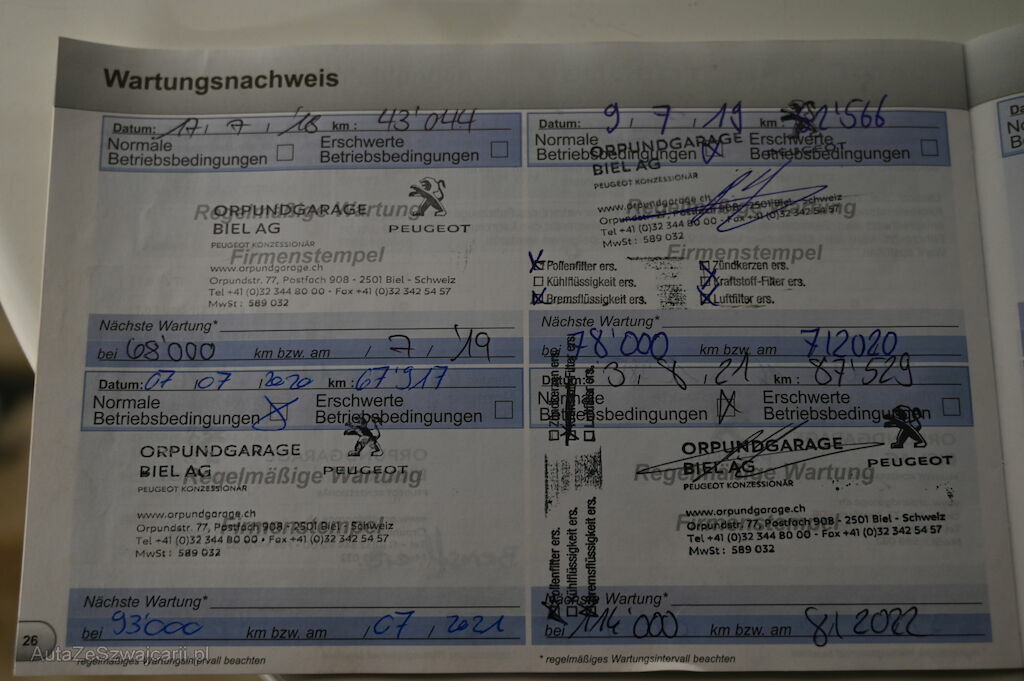 Wartungsnachweis
Datum: 17 , 7 , '18 km : 43'044
Normale
Betriebsbedingungen
Erschwerte
Betriebsbedingungen
Regelmäßige Wartung
ORPUNDGARAGE
BIEL AG
PEUGEOT KONZESSIONÄR
PEUGEOT
Firmenstempel
www.orpundgarage.ch
Orpundstr. 77, Postfach 908 - 2501 Biel - Schweiz
Tel +41 (0)32 344 80 00 - Fax +41 (0)32 342 54 57
MwSt : 589 032
Nächste Wartung*
bei 68'000 km bzw. am / 7 / '19
Datum: 9 , 7 , 19 km 566
Normale
Betriebsbedingungen
Erschwerte
Betriebsbedingungen
ORPUNDGARAGE
BIEL AG
PEUGEOT KONZESSIONÄR
PEUGEOT
www.orpundgarage.ch
Orpundstr. 77, Postfach 908 - 2501 Biel - Schweiz
Tel +41 (0)32 344 80 00 - Fax +41 (0)32 342 54 57
MwSt : 589 032
Firmenstempel
Pollenfilter ers.
Kühlflüssigkeit ers.
Bremsflüssigkeit ers.
Zündkerzen ers.
Kraftstoff-Filter ers.
Luftfilter ers.
Nächste Wartung*
bei 78'000 km bzw. am 7/2020
Datum: 07 , 07 , 2020 km : 67'917
Normale
Betriebsbedingungen
Erschwerte
Betriebsbedingungen
ORPUNDGARAGE
BIEL AG
PEUGEOT KONZESSIONÄR
PEUGEOT
Regelmäßige Wartung
www.orpundgarage.ch
Orpundstr. 77, Postfach 908 - 2501 Biel - Schweiz
Tel +41 (0)32 344 80 00 • Fax +41 (0)32 342 54 57
MwSt : 589 032
Nächste Wartung*
bei 93'000 km bzw. am / 07 / 2021
* regelmäßiges Wartungsintervall beachten
Datum: 3 , 8 , 21 km : 87'529
Normale
Betriebsbedingungen
Erschwerte
Betriebsbedingungen
ORPUNDGARAGE
BIEL AG
PEUGEOT KONZESSIONÄR
PEUGEOT
Regelmäßige Wartung
www.orpundgarage.ch
Orpundstr. 77, Postfach 908 - 2501 Biel - Schweiz
Tel +41 (0)32 344 80 00 - Fax +41 (0)32 342 54 57
MwSt : 589 032
Pollenfilter ers.
Kühlflüssigkeit ers.
Bremsflüssigkeit ers.
Zündkerzen ers.
Luftfilter ers.
Nächste Wartung*
bei 114'000 km bzw. am 8/2022
* regelmäßiges Wartungsintervall beachten
26
AutaZeSzwajcarii.pl